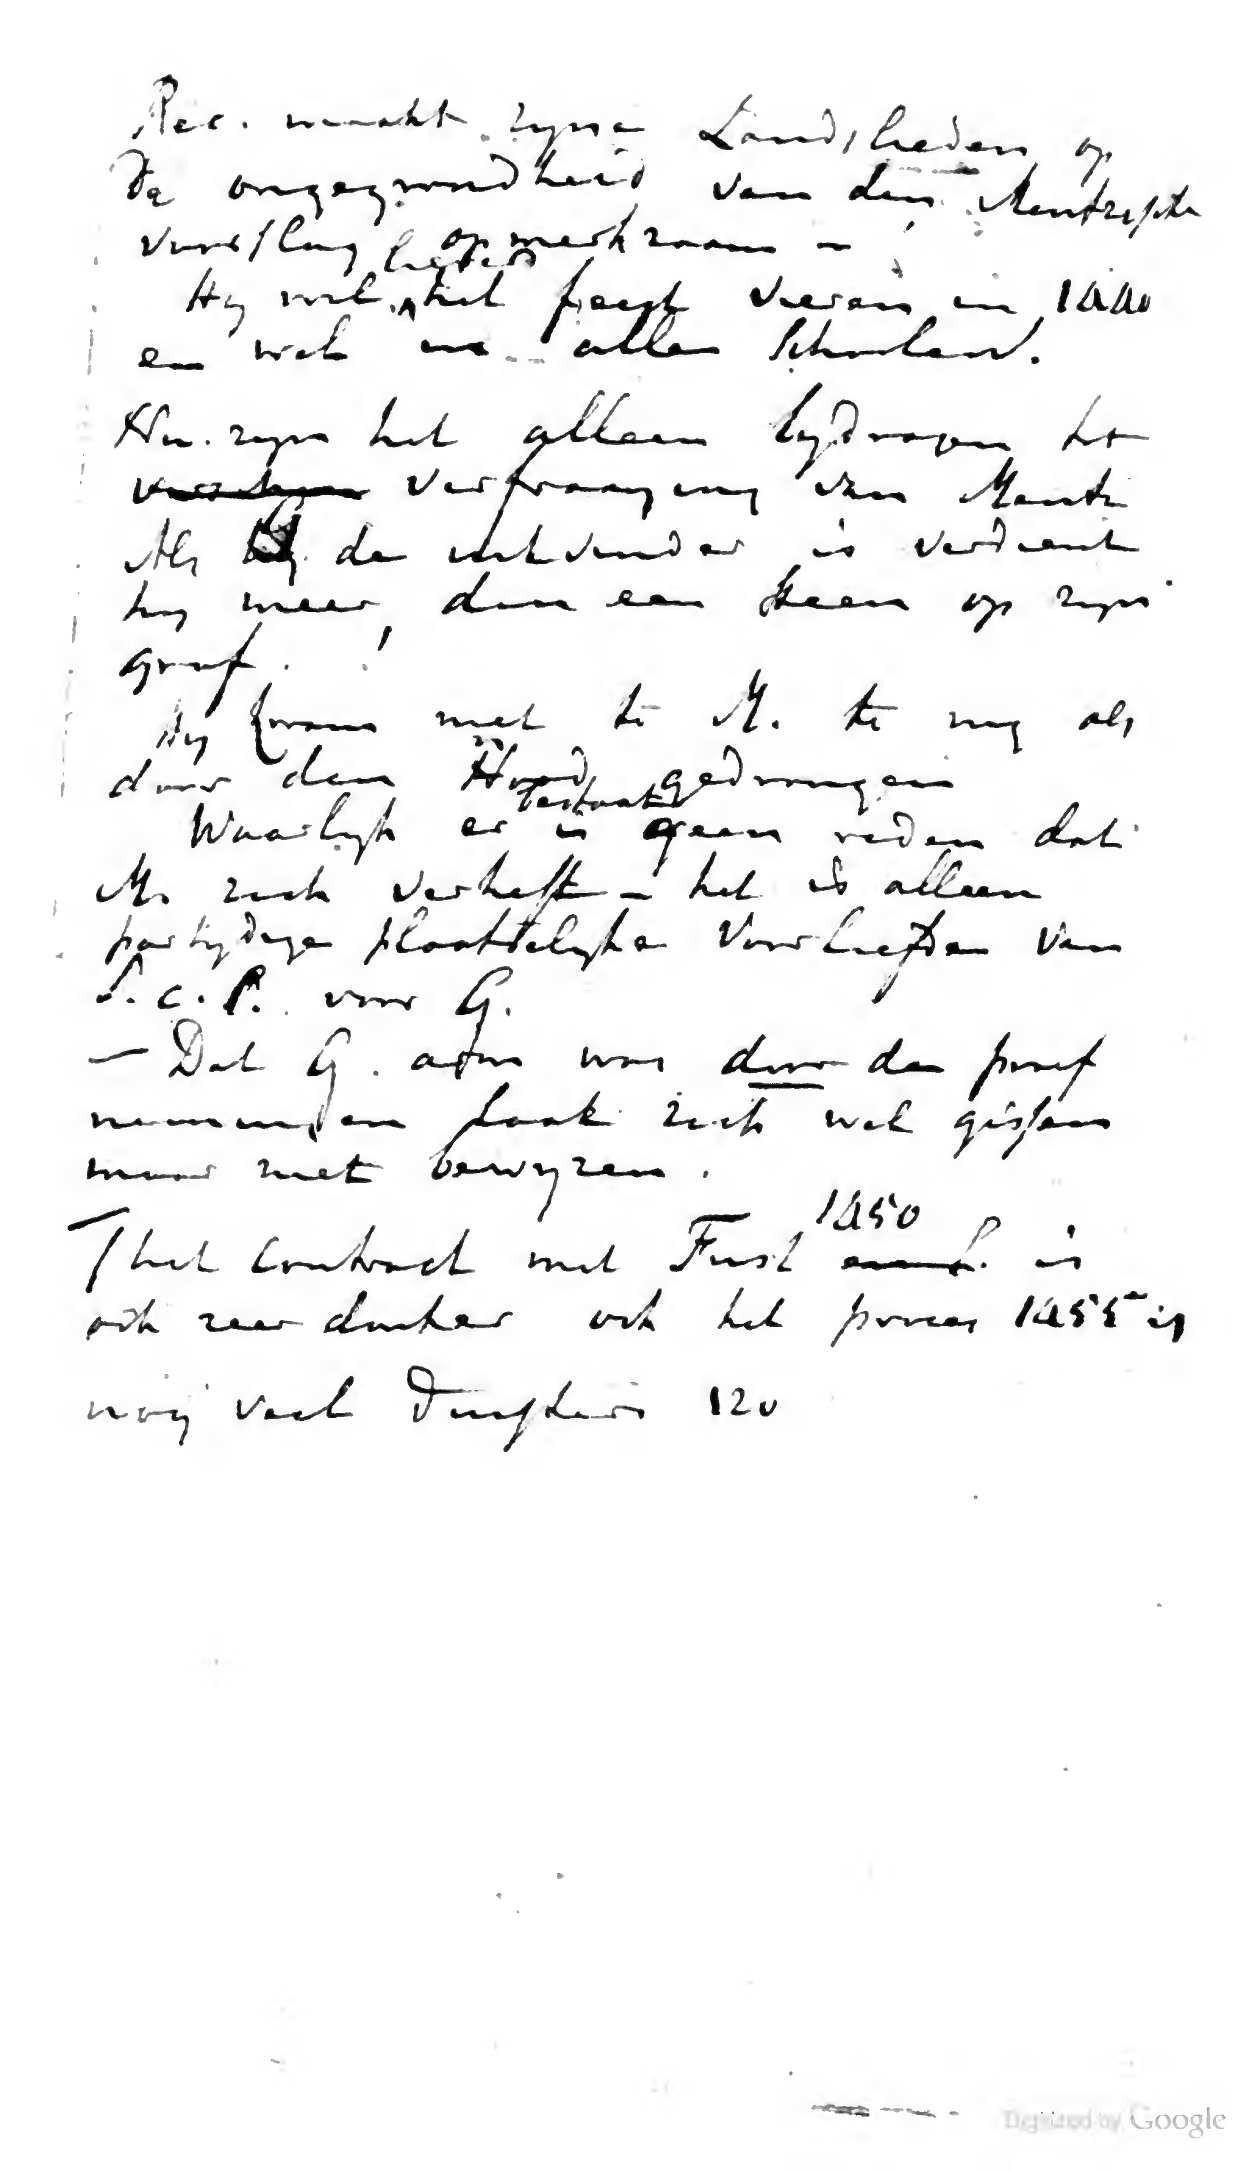 Rec. maakt zyne Landslieden op
de ongegrondheid van den Mentzische
voorslag opmerkzaam –
liever
Hy wil het feest vieren in 1440
en wel in alle Schooland.
Nu zyn het alleen bydragen tot
verfraaying van Mentz
Als hy de uitvinder is verdient
hy meer, dan een steen op zyn
graf.
Hy kwam niet te M. te rug als
door den Nood gedrongen
bestaat
Waarlyk er is geen reden dat
M. zich verheft – het is alleen
partydige plaatselyke Voorliefden van
S.c.P. voor G.
– Dat G. arm was door de proef
nemingen laat zich wel gissen
maar niet bewyzen.
1450
het Contract met Fust is
ook zeer donker ook het proces 1455 is
nog veel duisters 120
Digitized by Google